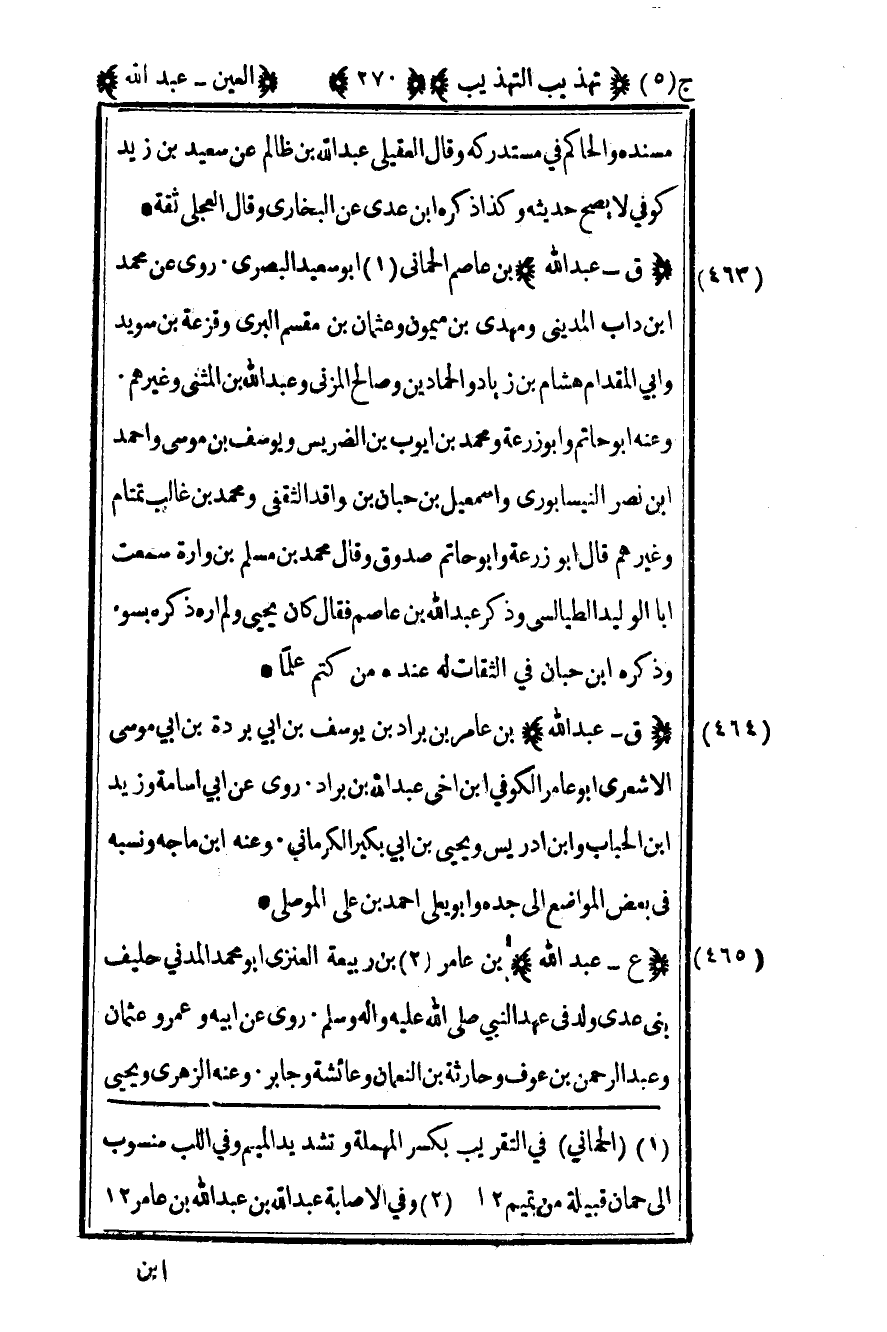 ج(٥) ﴿ تهذيب التهذيب ﴾ ﴿ ٢٧٠ ﴾ ﴿ العين ـ عبد الله ﴾
مسنده والحاكم في مستدركه وقال العقيلى عبدالله بن ظالم عن سعيد بن زيد
كوفي لا يصح حديثه وكذا ذكره ابن عدى عن البخارى وقال العجلى ثقة •
﴿ ق ـ عبدالله ﴾ بن عاصم الحمانى (١) ابو سعيد البصرى · روى عن محمد (٤٦٣)
ابن داب المدينى ومهدى بن ميمون وعثمان بن مقسم البرى وقزعة بن سويد
وابي المقدام هشام بن زياد والحمادين وصالح المزنى وعبدالله بن المثنى وغيرهم ·
وعنه ابو حاتم وابو زرعة ومحمد بن ايوب بن الضريس ويوسف بن موسى واحمد
ابن نصر النيسابورى واسمعيل بن حبان بن واقد الثقفى ومحمد بن غالب تمتام
وغيرهم قال ابو زرعة وابو حاتم صدوق وقال محمد بن مسلم بن وارة سمعت
ابا الوليد الطيالسى وذكر عبدالله بن عاصم فقال كان يحيى ولم اره ذكره بسو·
وذكره ابن حبان في الثقات له عنده من كتم علمًا •
﴿ ق ـ عبدالله ﴾ بن عامر بن براد بن يوسف بن ابي بردة بن ابي موسى (٤٦٤)
الاشعرى ابو عامر الكوفي ابن اخى عبدالله بن براد · روى عن ابي اسامة وزيد
ابن الحباب وابن ادريس ويحيى بن ابي بكير الكرماني · وعنه ابن ماجه ونسبه
فى بعض المواضع الى جده وابو يعلى احمد بن على الموصلى •
﴿ ع ـ عبد الله ﴾ بن عامر (٢) بن ربيعة العنزى ابو محمد المدني حليف (٤٦٥)
بنى عدى ولد فى عهد النبي صلى الله عليه واله وسلم · روى عن ابيه و عمر و عثمان
وعبدالرحمن بن عوف وحارثة بن النعمان وعائشة وجابر · وعنه الزهرى ويحيى
(١) (الحماني) في التقريب بكسر المهملة وتشديد الميم وفي اللب منسوب
الى حمان قبيلة من تميم ١٢ (٢) وفي الاصابة عبدالله بن عبدالله بن عامر ١٢
ابن